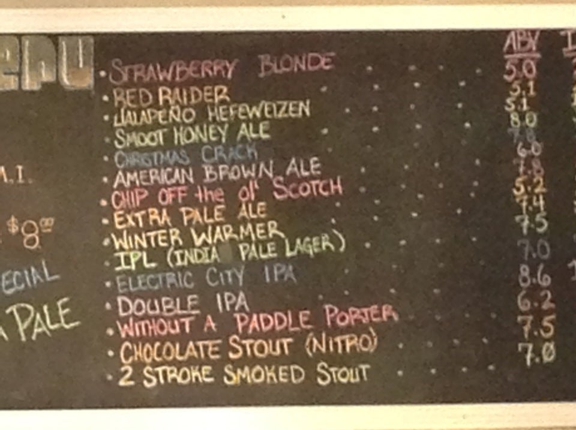 ABV
• STRAWBERRY BLONDE 5.0
• RED RAIDER 5.1
• JALAPEÑO HEFEWEIZEN 5.1
• SMOOT HONEY ALE 8.0
• CHRISTMAS CRACK
• AMERICAN BROWN ALE 6.0
• CHIP OFF the ol' SCOTCH
• EXTRA PALE ALE 5.2
• WINTER WARMER 7.4
• IPL (INDIA PALE LAGER) 7.5
• ELECTRIC CITY IPA 7.0
• DOUBLE IPA 8.6
• WITHOUT A PADDLE PORTER 6.2
• CHOCOLATE STOUT (NITRO) 7.5
• 2 STROKE SMOKED STOUT 7.0
$8.00
ECIAL
PALE